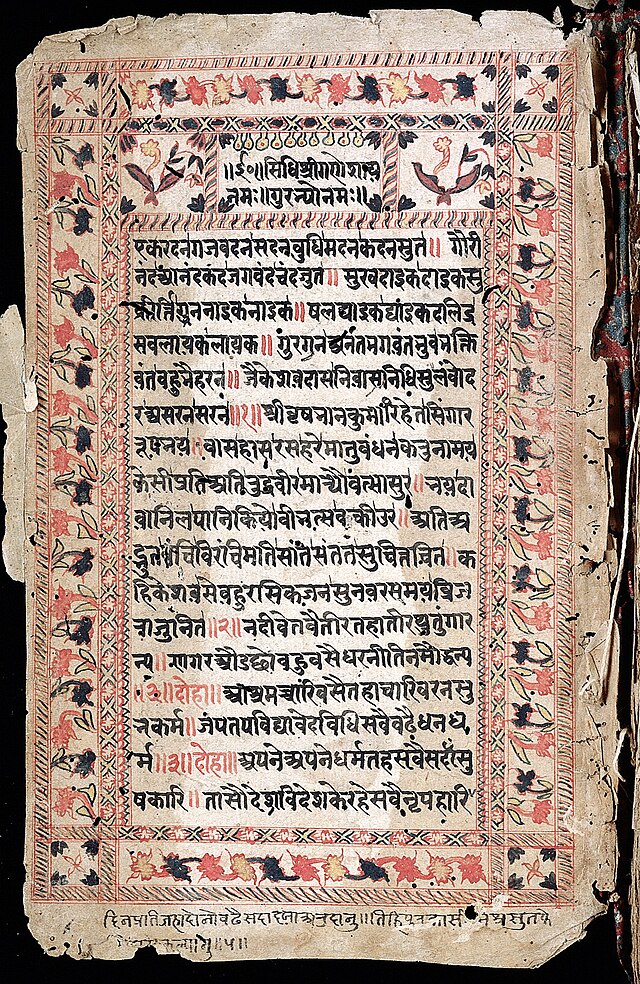 ॥६०॥सिधिश्रीगणेशाय
नमः॥गुरभ्योनमः॥
एकरदनगजवदनसदनबुधिमदनकदनसुत॥ गौरी
नदआनंदकदजगवंदचंदजुत॥ सुखदाइकदाइकसु
कीर्त्तिगुननाइकनाइक॥ षलघाइकघांइकदलिद्र
सबलायकलायक॥ गुरगुनअनंतभगवंतभुवभक्ति
वंतबहुभैहरन॥ जैकेशवदासनिवासनिधिसुलंबोद
रअसरनसरनं॥१॥श्रीबृषभानकुमारिहेतसिंगार
रूपभय॥वासहासरसहरेमातुबंधनकरुनामय
केसीप्रतिअतिरुद्रवीरमाच्यौवत्सासुर॥ भयदा
वानिलपानिकियोवीभत्सबकीउर॥ अतिअ
द्भुतबंचिबिरंचिमतिसांतसंततेसुचितचित॥क
हिकेशवसेवहुरसिकजनसुनवरसमयब्रिज
राजुनित॥२॥ नदीवेतवैतीरतहातीरथतुंगार
न्य॥नगरऔडछोबहुबसैधरनीतिनमैधन्य
॥३॥दोहा॥ आश्रमच्यारिवसैतहाचारिवरनसु
नकर्म॥ जपतपविद्यावेदविधिसवैवढैधनध
र्म॥३॥दोहा॥अपनेअपनेधर्मतहसवैसदासु
षकारि॥ तासौदेशविदेशकेरहेसवैनृपहारि